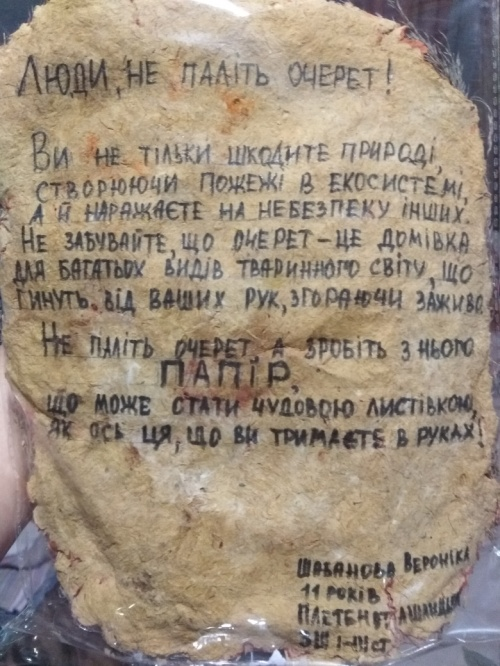 Люди, не паліть очерет!
Ви не тільки шкодите природі,
створюючи пожежі в екосистемі,
а й наражаєте на небезпеку інших.
Не забувайте, що очерет - це домівка
для багатьох видів тваринного світу, що
гинуть від ваших рук, згораючи заживо.
Не паліть очерет, а зробіть з нього
ПАПІР,
що може стати чудовою листівкою,
як ось ця, що ви тримаєте в руках!
Шабанова Вероніка
11 років
ЗШ І-ІІІ ст